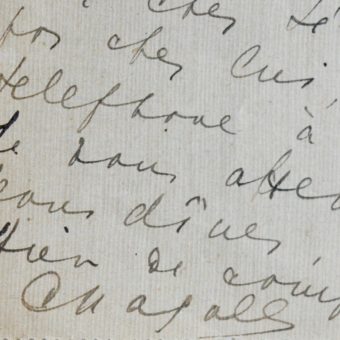 chez
pas chez lui,
téléphone à
Je vous atten
pour dîner
Bien de
Chagall